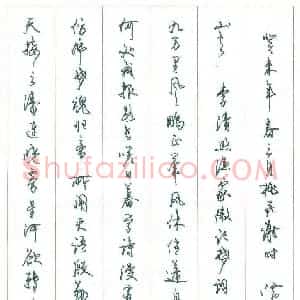 天接云涛连晓雾星河欲转
仿佛梦魂归帝所闻天语殷勤
何处我报路长嗟日暮学诗谩有
九万里风鹏正举风休住蓬舟
山去 李清照渔家傲记梦词
癸未年春之月
Shufaziliao.com